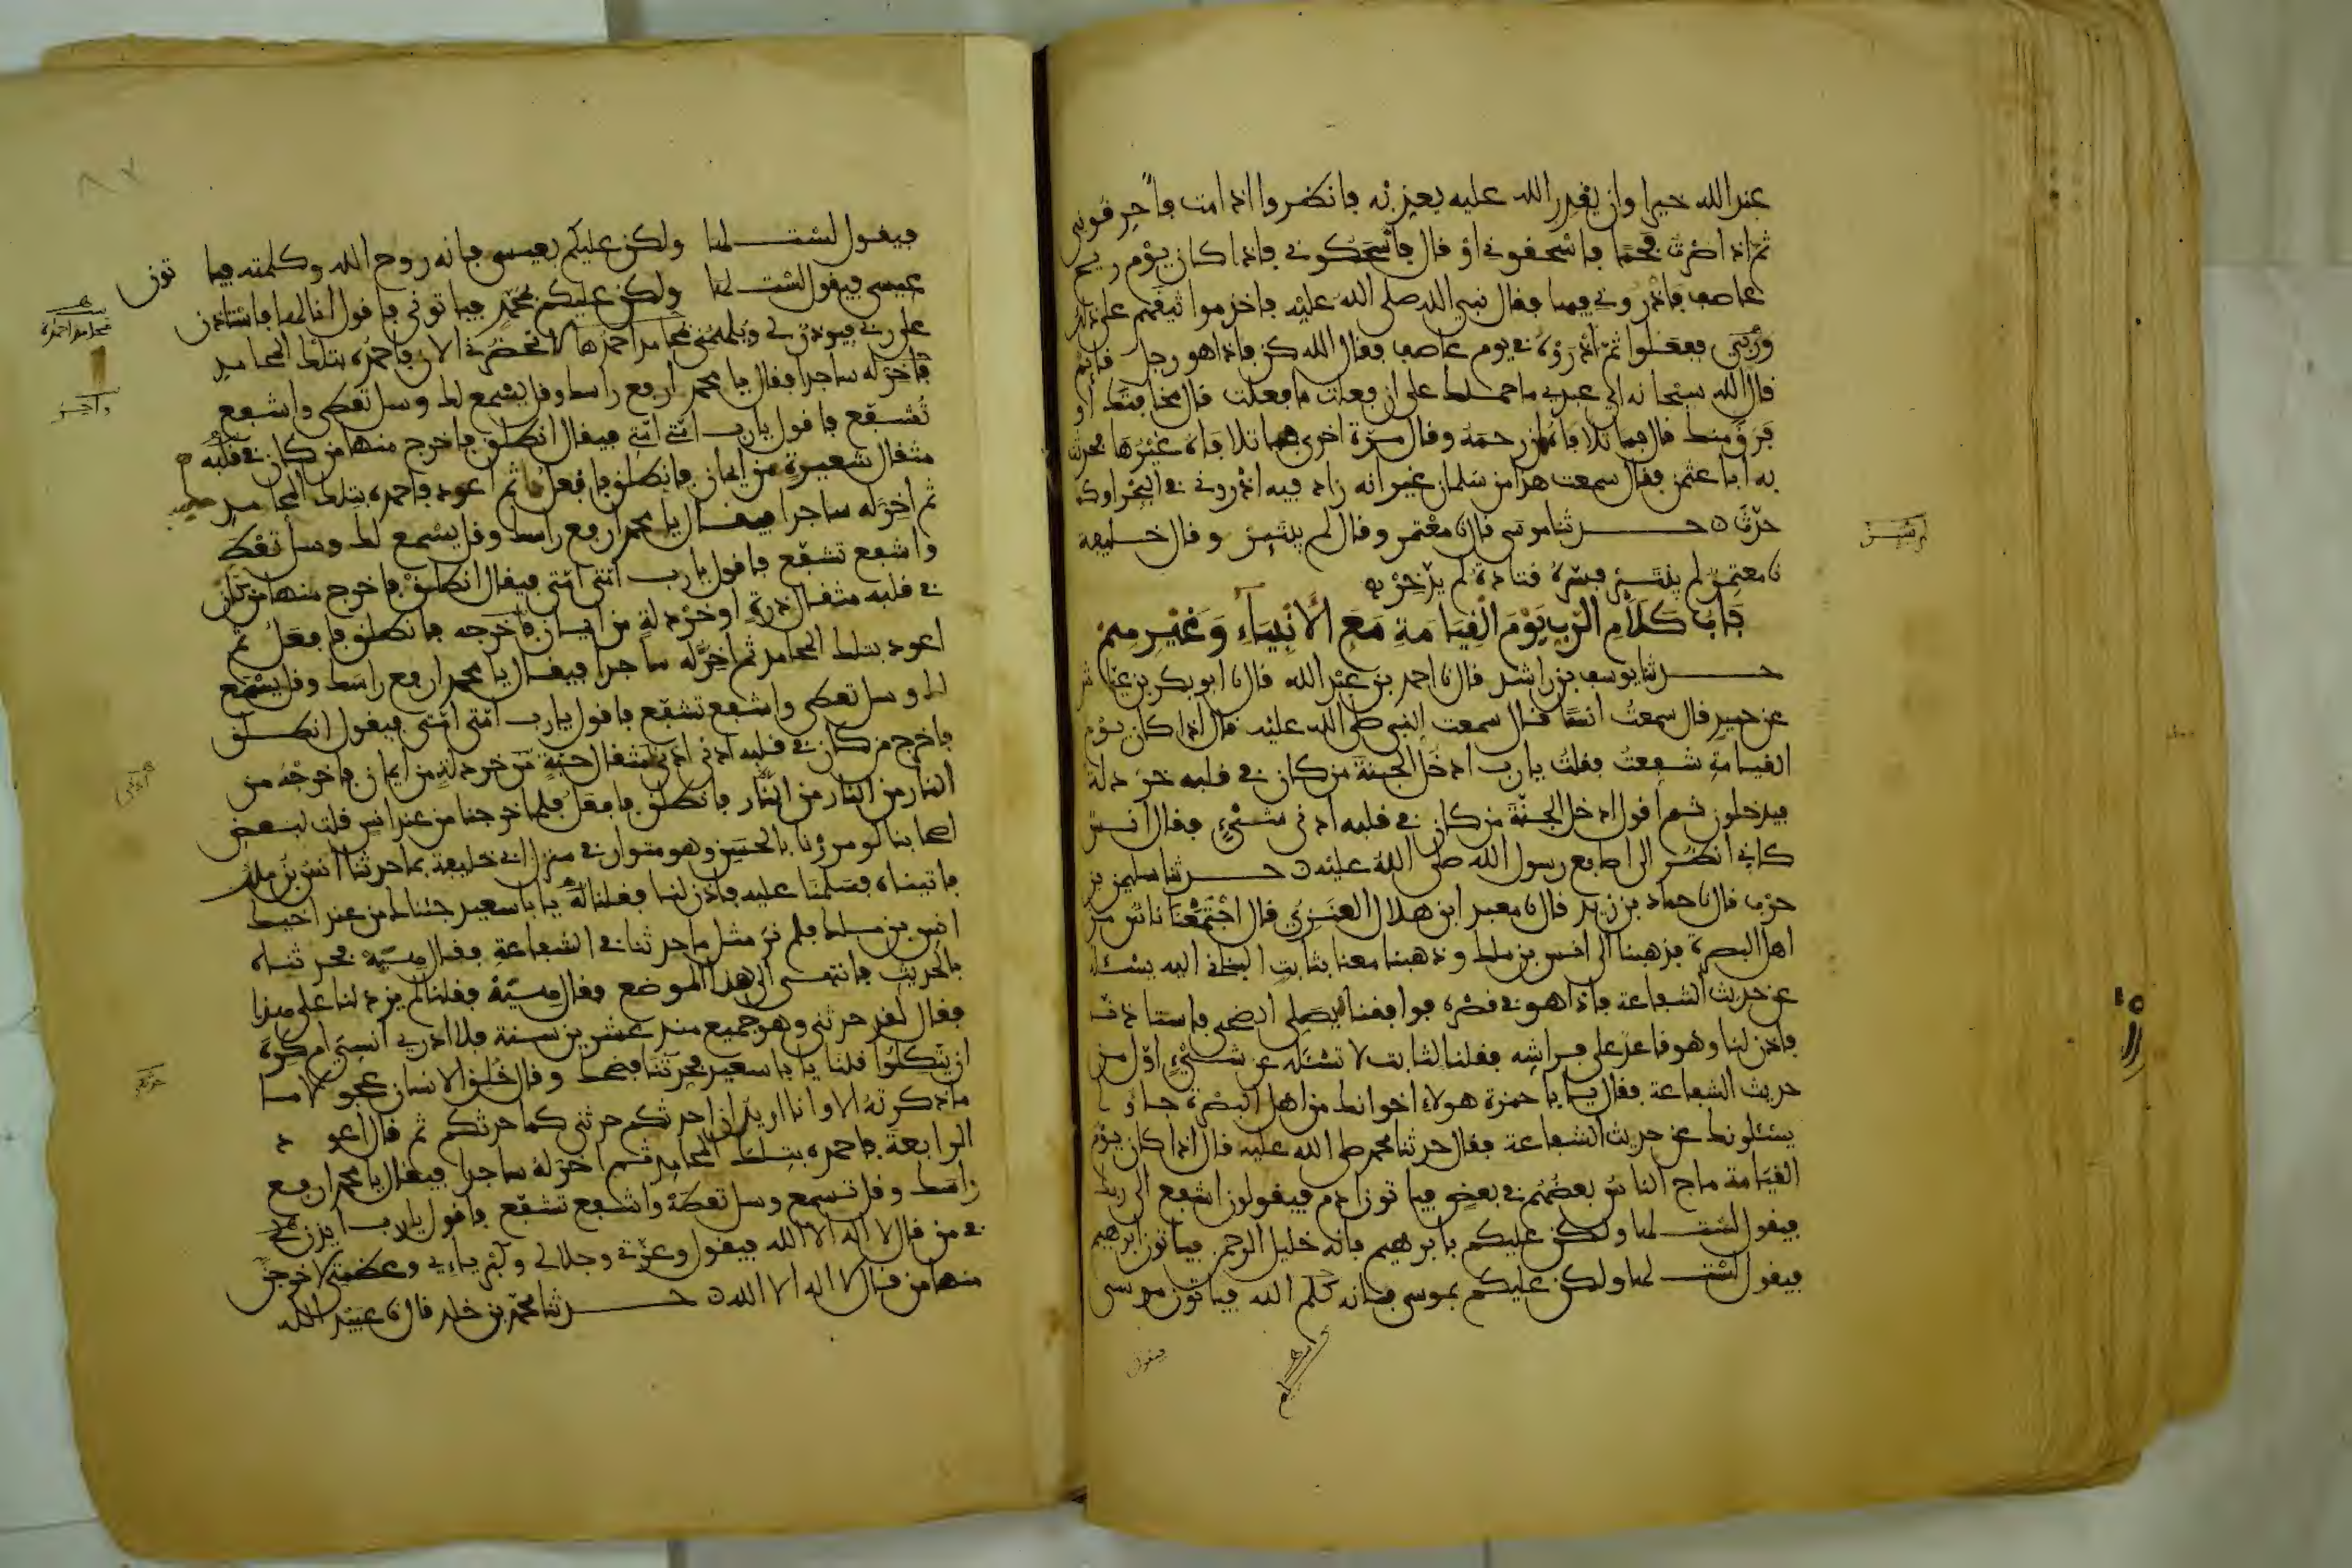 عند الله خيرا وان يقدر الله عليه يعذبه فانظروا اذا مت فاحرقوني
ثم اذا صرت فحما فاسحقوني او قال فاسحكوني فاذا كان يوم ريح
عاصف فاذروني فيها فقال نبي الله صلى الله عليه فاخذ مواثيقهم على ذلك
وربي ففعلوا ثم اذروه في يوم عاصف فقال الله كن فاذا هو رجل قائم
قال الله سبحانه اي عبدي ما حملك على ان فعلت ما فعلت قال مخافتك او
فرق منك قال فما تلافاه ان رحمه وقال مرة اخرى فما تلافاه غيرها فحدثت
به ابا عثمن فقال سمعت هذا من سلمان غير انه زاد فيه اذروني في البحر او كما
حدث حدثنا موسى قال نا معتمر وقال لم يبتئر وقال خليفة
نا معتمر لم يبتئز فسره قتادة لم يدخر
باب كلام الرب يوم القيامة مع الانبياء وغيرهم
حدثنا يوسف بن راشد قال نا احمد بن عبد الله قال نا ابو بكر بن عياش
عن حميد قال سمعت انسا قال سمعت النبي صلى الله عليه قال اذا كان يوم
القيامة شفعت فقلت يا رب ادخل الجنة من كان في قلبه خردلة
فيدخلون ثم اقول ادخل الجنة من كان في قلبه ادنى شيء فقال انس
كاني انظر الى اصابع رسول الله صلى الله عليه حدثنا سليمن بن
حرب قال نا حماد بن زيد قال نا معبد ابن هلال العنزي قال اجتمعنا ناس من
اهل البصرة فذهبنا الى انس بن ملك وذهبنا معنا بثابت البناني اليه يسئله
عن حديث الشفاعة فاذا هو في قصره فوافقنا يصلي الضحى فاستاذنا
فاذن لنا وهو قاعد على فراشه فقلنا لثابت لا تسئله عن شيء اول من
حديث الشفاعة فقال يا با حمزة هولاء اخوانك من اهل البصرة جاوا
يسئلونك عن حديث الشفاعة فقال حدثنا محمد صلى الله عليه قال اذا كان يوم
القيامة ماج الناس بعضهم في بعض فياتون ادم فيقولون اشفع الى ربك
فيقول لست لها ولكن عليكم بابرهيم فانه خليل الرحمن فياتون ابرهيم
فيقول لست لها ولكن عليكم بموسى فانه كلم الله فياتون موسى
فيقول
فيقول لست لها ولكن عليكم بعيسى فانه روح الله وكلمته فيا تون
عيسى فيقول لست لها ولكن عليكم بمحمد فياتوني فاقول انا لها فاستاذن
على ربي فيوذن لي ويلهمني محامد احمده بها لا تحضرني الان فاحمده بتلك المحامد
فاخر له ساجدا فقال يا محمد ارفع راسك وقل يسمع لك وسل تعطى واشفع
تشفع فاقول يا رب امتي امتي فيقال انطلق فاخرج منها من كان في قلبه
مثقال شعيرة من ايمان فانطلق فافعل ثم اعود فاحمده بتلك المحامد
ثم اخر له ساجدا فيقال يا محمد ارفع راسك وقل يسمع لك وسل تعط
واشفع تشفع فاقول يا رب امتي امتي فيقال انطلق فاخرج منها من كان
في قلبه مثقال ذرة او خردلة من ايمان فاخرجه فانطلق فافعل ثم
اعود بتلك المحامد ثم اخر له ساجدا فيقال يا محمد ارفع راسك وقل يسمع
لك وسل تعطى واشفع تشفع فاقول يا رب امتي امتي فيقول انطلق
فاخرج من كان في قلبه ادنى ادنى مثقال حبة من خردلة من ايمان فاخرجه من
النار من النار من النار فانطلق فافعل فلما خرجنا من عند انس قلت لبعض
اصحابنا لو مررنا بالحسن وهو متوار في منزل ابي خليفة بما حدثنا انس بن ملك
فاتيناه فسلمنا عليه فاذن لنا فقلنا له يا با سعيد جئناك من عند اخيك
انس بن ملك فلم نر مثل ما حدثنا في الشفاعة فقال هيه فحدثناه
بالحديث فانتهى الى هذا الموضع فقال هيه فقلنا لم يزد لنا على هذا
فقال لقد حدثني وهو جميع منذ عشرين سنة فلا ادري انسي ام كره
ان تتكلوا قلنا يا با سعيد فحدثنا فضحك وقال خلق الانسان عجولا ما
ما ذكرته الا وانا اريد ان احدثكم حدثني كما حدثكم ثم قال اعود
الرابعة فاحمده بتلك المحامد ثم اخر له ساجدا فيقال يا محمد ارفع
راسك وقل تسمع وسل تعطه واشفع تشفع فاقول يا رب ايذن لي
في من قال لا اله الا الله فيقول وعزتي وجلالي وكبريائي وعظمتي لاخرجن
منها من قال لا اله الا الله حدثنا محمد بن خلد قال نا عبيد الله